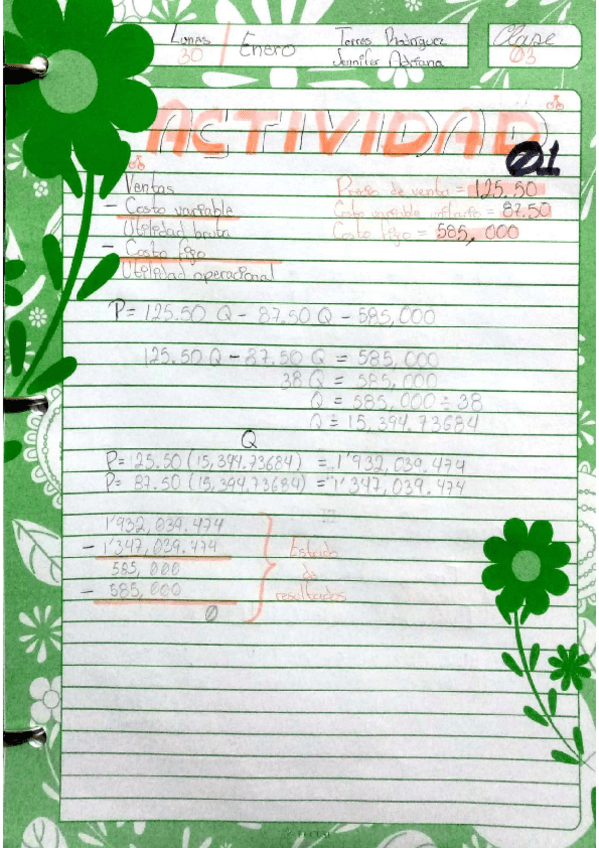 Lunes Enero Torres Rodríguez Clase
30 Jennifer Adriana 03
ACTIVIDAD
01
Ventas Precio de venta = 125.50
- Costo variable Costo variable unitario = 87.50
Utilidad bruta Costo fijo = 585,000
- Costo fijo
Utilidad operacional
P= 125.50 Q - 87.50 Q - 585,000
125.50 Q - 87.50 Q = 585,000
38 Q = 585,000
Q = 585,000 ÷ 38
Q = 15,394.73684
Q
P= 125.50 (15,394.73684) = 1'932,039.474
P= 87.50 (15,394.73684) = 1'347,039.474
1'932,039.474
- 1'347,039.474 Estado
585,000 de
- 585,000 resultados
0